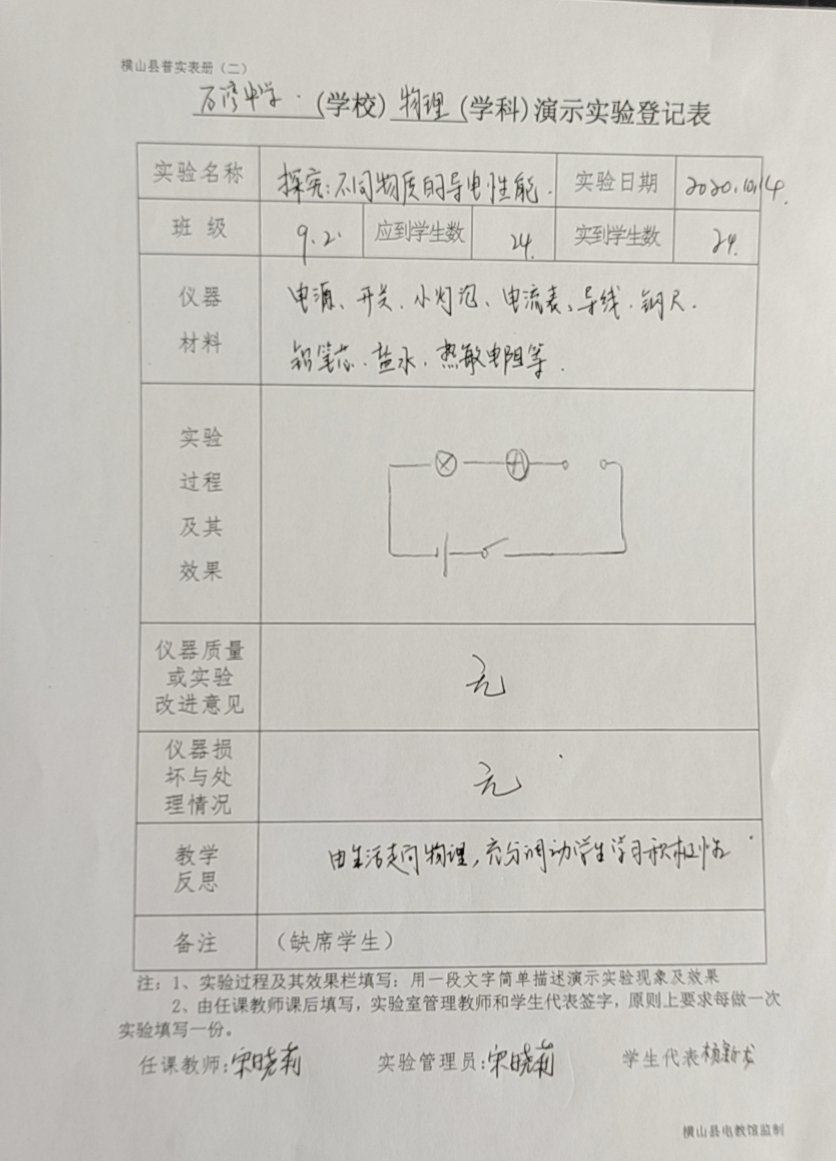 横山县普实表册（二）
石湾中学（学校）物理（学科）演示实验登记表
实验名称 探究:不同物质的导电性能. 实验日期 2020.10.14.
班 级 9.2. 应到学生数 24. 实到学生数 24.
仪器 电源、开关、小灯泡、电流表、导线、钢尺.
材料 铅笔芯、盐水、热敏电阻等.
实验
过程
及其
效果
A
仪器质量
或实验
改进意见
无
仪器损
坏与处
理情况
无
教学
反思
由生活走向物理,充分调动学生学习积极性
备注 （缺席学生）
注：1、实验过程及其效果栏填写：用一段文字简单描述演示实验现象及效果
2、由任课教师课后填写，实验室管理教师和学生代表签字，原则上要求每做一次
实验填写一份。
任课教师:宋晓莉 实验管理员:宋晓莉 学生代表
横山县电教馆监制